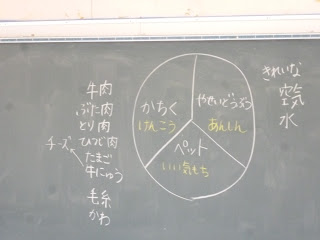 牛肉
ぶた肉
とり肉
ひつじ肉
たまご
チーズ 牛にゅう
毛糸
かわ
かちく
けんこう
やせいどうぶつ
あんしん
ペット
いい気もち
きれいな
空気
水